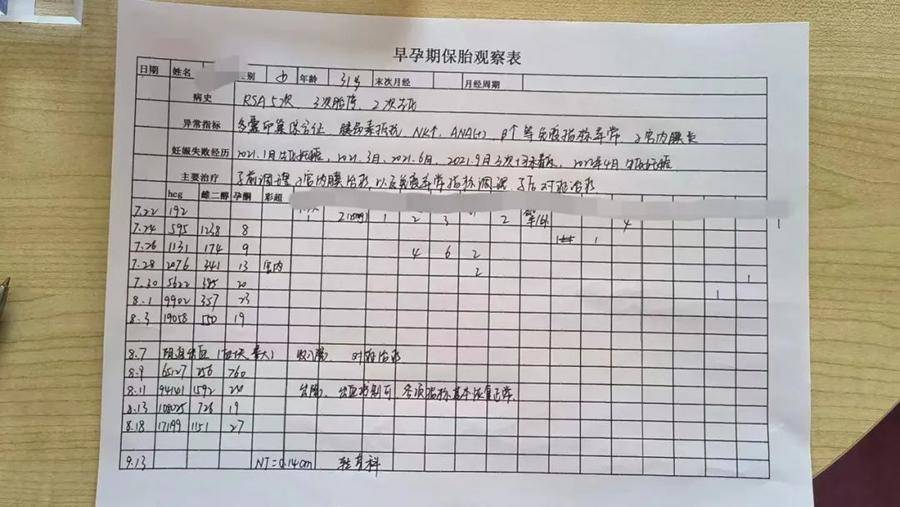 早孕期保胎观察表
日期 姓名 别 女 年龄 31岁 末次月经 月经周期
病史 RSA5次 3次胎停, 2次生化
异常指标 多囊卵巢综合征 胰岛素抵抗, NK↑, ANA(+) 等免疫指标异常 子宫内膜
妊娠失败经历 2021.1月 2021.3月, 2021.6月, 2021.9月3次 2022年4月
主要治疗 孕前调理 子宫内膜 以及免疫异常指标调理, 孕后对症治疗
hcg 雌二醇 孕酮 彩超
7.22 192 1 2 1 2 3 2 4 1
7.24 595 1238 8 1
7.26 1131 174 9 4 6 2
7.28 2076 341 13 宫内 2 1
7.30 5622 385 20 1 1
8.1 9902 357 23
8.3 19058 550 19
8.7 阴道出血 收入院 对症治疗
8.9 65127 756 760
8.11 94101 1592 出院, 出血控制后 各项指标基本恢复正常.
8.13 728 19
8.18 17199 1151 27
9.13 NT=0.14cm 转产科